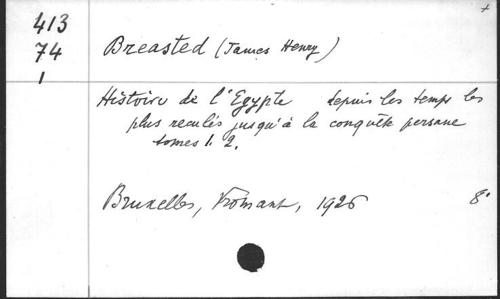 413
74
1
+
Breasted (James Henry)
Histoire de l'Egypte depuis les temps les
plus reculés jusqu'à la conquête persane
tomes 1. 2.
Bruxelles, Vromant, 1926 8°